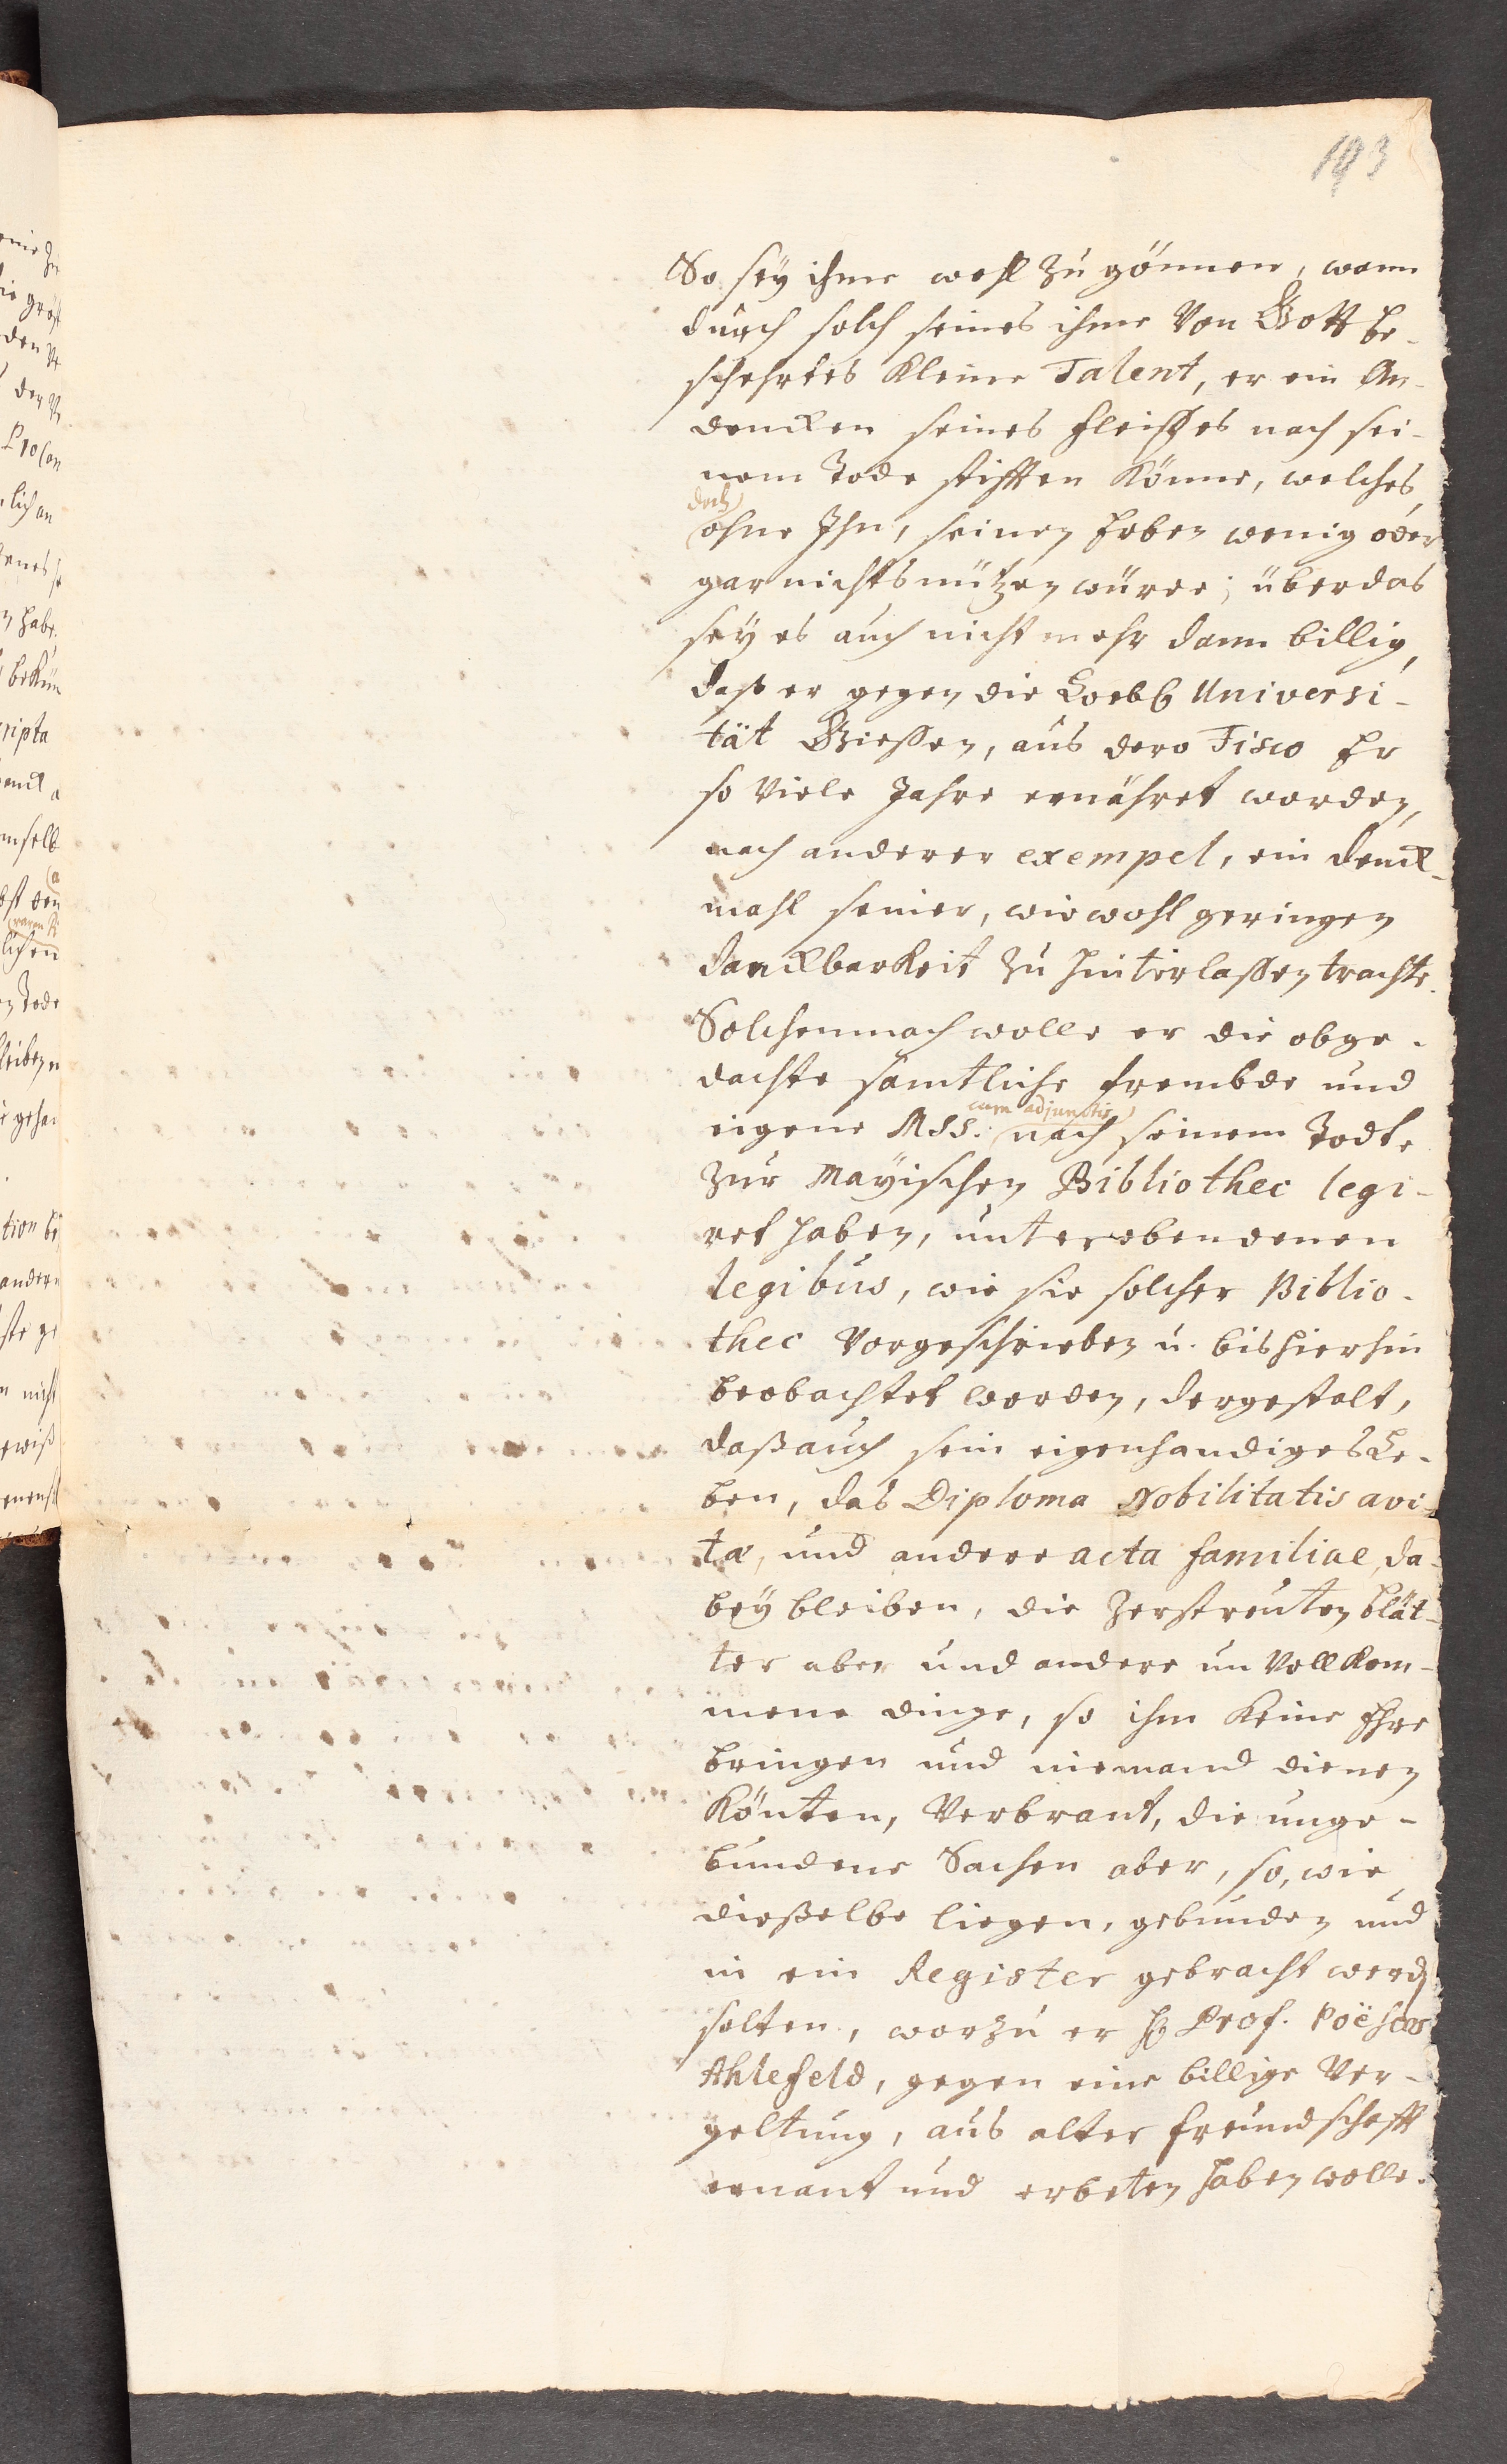 193
So sey ihme wohl zu gönnen, wann
durch solch seines ihme von Gott be-
schehrtes kleine Talent, er ein An-
dencken seines Fleisses nach sei-
nem Tode stifften könne, welches
doch
ohne Ihn, seinen Erben wenig oder
gar nichts nützen würde; überdas
sey es auch nicht mehr dann billig,
daß er gegen die Loebl Universi-
tät Giessen, aus dero Fisco Er
so viele Jahre ernähret worden,
nach anderer exempel, ein denck-
mahl seiner, wiewohl geringen
danckbarkeit zu hinterlassen trachte.
Solchemnach wolle er die obge-
dachte sämtliche frembde und
cum adjunctis
eigene Mss. nach seinem Todte
zur Mayischen Bibliothec legi-
ret haben, unter eben denen
legibus, wie sie solcher Biblio-
thec vorgeschrieben u. bishierhin
beobachtet worden, dergestalt,
daß auch sein eigenhandiges Le-
ben, das Diploma Nobilitatis avi-
tæ, und andere acta familiae, da-
bey bleiben, die zerstreuten blät-
ter aber und andere unvollkom-
mene dinge, so ihm keine Ehre
bringen und niemand dienen
könten, verbrant, die unge-
bundene Sachen aber, so, wie
dieselbe liegen, gebunden und
in ein Register gebracht werden
solten, worzu er H. Prof. Poëseos
Ahlefeld, gegen eine billige Ver-
geltung, aus alter freundschafft
ernant und erbeten haben wolle.